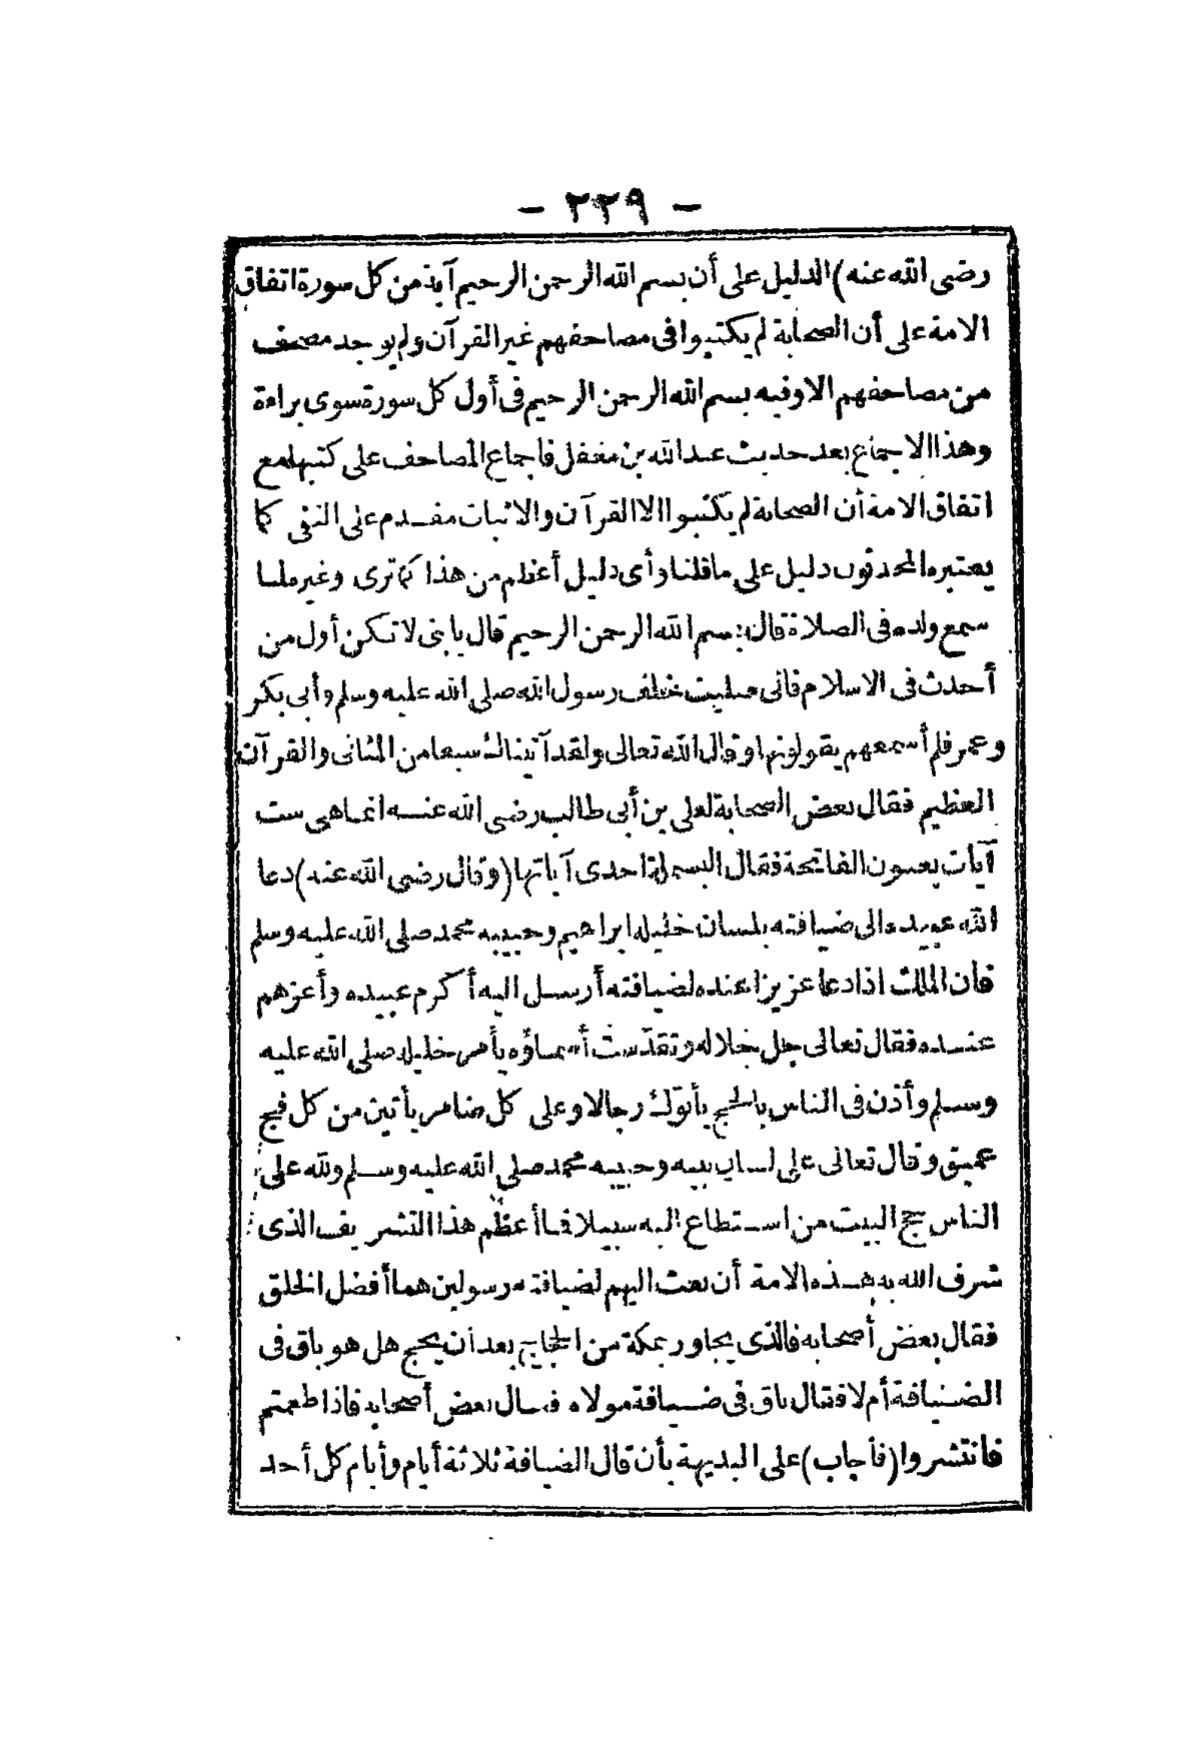 - ٢٢٩ -
رضى الله عنه) الدليل على أن بسم الله الرحمن الرحيم آية من كل سورة اتفاق
الامة على أن الصحابة لم يكتبوا فى مصاحفهم غير القرآن ولم يوجد مصحف
من مصاحفهم الا وفيه بسم الله الرحمن الرحيم فى أول كل سورة سوى براءة
وهذا الاجماع بعد حديث عبد الله بن مغفل فاجماع المصاحف على كتبها مع
اتفاق الامة أن الصحابة لم يكتبوا الا القرآن والاثبات مقدم على النفى كما
يعتبره المحدثون دليل على ما قلنا وأى دليل أعظم من هذا كما ترى وغيره لما
سمع ولده فى الصلاة قال بسم الله الرحمن الرحيم قال يا بنى لا تكن أول من
أحدث فى الاسلام فانى صليت خلف رسول الله صلى الله عليه وسلم وأبى بكر
وعمر فلم أسمعهم يقولونها وقال الله تعالى ولقد آتيناك سبعا من المثانى والقرآن
العظيم فقال بعض الصحابة لعلى بن أبى طالب رضى الله عنه انما هى ست
آيات يعنون الفاتحة فقال البسملة احدى آياتها (وقال رضى الله عنه) دعا
الله عبيده الى ضيافته بلسان خليله ابراهيم وحبيبه محمد صلى الله عليه وسلم
فان الملك اذا دعا عزيزا عنده لضيافته أرسل اليه أكرم عبيده وأعزهم
عنده فقال تعالى جل جلاله وتقدّست أسماؤه يأمر خليله صلى الله عليه
وسلم وأذن فى الناس بالحج يأتوك رجالا وعلى كل ضامر يأتين من كل فج
عميق وقال تعالى على لسان نبيه وحبيبه محمد صلى الله عليه وسلم ولله على
الناس حج البيت من استطاع اليه سبيلا فما أعظم هذا التشريف الذى
شرف الله به هذه الامة أن بعث اليهم لضيافته رسولين هما أفضل الخلق
فقال بعض أصحابه فالذى يجاور بمكة من الحجاج بعد أن يحج هل هو باق فى
الضيافة أم لا فقال باق فى ضيافة مولاه فقال بعض أصحابه فاذا طعمتم
فانتشروا (فأجاب) على البديهة بأن قال الضيافة ثلاثة أيام وأيام كل أحد